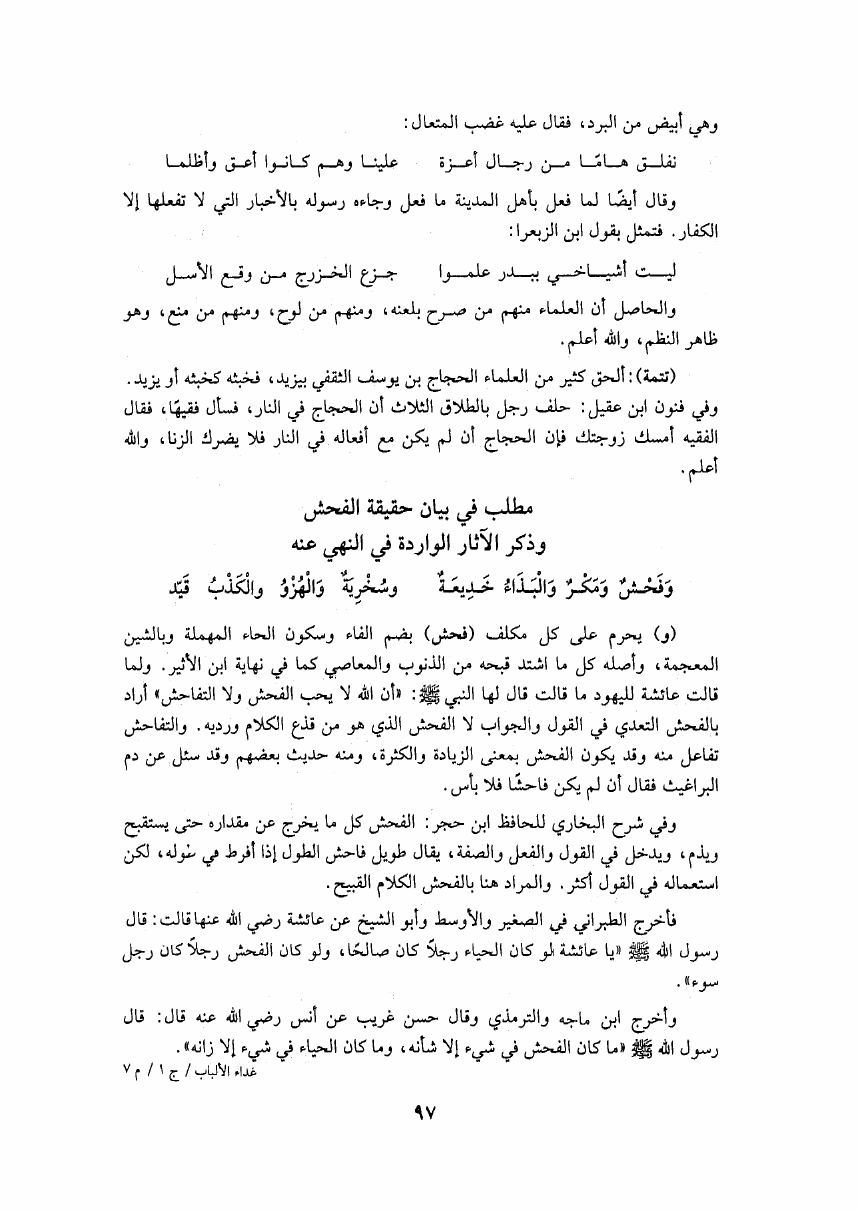 وهي أبيض من البرد، فقال عليه غضب المتعال:
نفلـق هـامًـا مـن رجـال أعـزة علينـا وهـم كـانـوا أعـق وأظلمـا
وقال أيضًا لما فعل بأهل المدينة ما فعل وجاءه رسوله بالأخبار التي لا تفعلها إلا
الكفار. فتمثل بقول ابن الزبعرا:
ليـت أشيـاخـي ببـدر علمـوا جـزع الخـزرج مـن وقـع الأسـل
والحاصل أن العلماء منهم من صرح بلعنه، ومنهم من لوح، ومنهم من منع، وهو
ظاهر النظم، والله أعلم.
(تتمة): ألحق كثير من العلماء الحجاج بن يوسف الثقفي بيزيد، فخبثه كخبثه أو يزيد.
وفي فنون ابن عقيل: حلف رجل بالطلاق الثلاث أن الحجاج في النار، فسأل فقيهًا، فقال
الفقيه أمسك زوجتك فإن الحجاج أن لم يكن مع أفعاله في النار فلا يضرك الزنا، والله
أعلم.
مطلب في بيان حقيقة الفحش
وذكر الآثار الواردة في النهي عنه
وَفَحْـشٌ وَمَكْـرٌ وَالْبَـذَاءُ خَـدِيعَـةٌ وسُخْرِيَةٌ وَالْهُزْوُ والْكَذْبُ قَيِّد
(و) يحرم على كل مكلف (فحش) بضم الفاء وسكون الحاء المهملة وبالشين
المعجمة، وأصله كل ما اشتد قبحه من الذنوب والمعاصي كما في نهاية ابن الأثير. ولما
قالت عائشة لليهود ما قالت قال لها النبي ﷺ: «أن الله لا يحب الفحش ولا التفاحش» أراد
بالفحش التعدي في القول والجواب لا الفحش الذي هو من قذع الكلام ورديه. والتفاحش
تفاعل منه وقد يكون الفحش بمعنى الزيادة والكثرة، ومنه حديث بعضهم وقد سئل عن دم
البراغيث فقال أن لم يكن فاحشًا فلا بأس.
وفي شرح البخاري للحافظ ابن حجر: الفحش كل ما يخرج عن مقداره حتى يستقبح
ويذم، ويدخل في القول والفعل والصفة، يقال طويل فاحش الطول إذا أفرط في طوله، لكن
استعماله في القول أكثر. والمراد هنا بالفحش الكلام القبيح.
فأخرج الطبراني في الصغير والأوسط وأبو الشيخ عن عائشة رضي الله عنها قالت: قال
رسول الله ﷺ «يا عائشة لو كان الحياء رجلاً كان صالحًا، ولو كان الفحش رجلاً كان رجل
سوء».
وأخرج ابن ماجه والترمذي وقال حسن غريب عن أنس رضي الله عنه قال: قال
رسول الله ﷺ «ما كان الفحش في شيء إلا شأنه، وما كان الحياء في شيء إلا زانه».
غذاء الألباب/ ج ١/ م ٧
٩٧